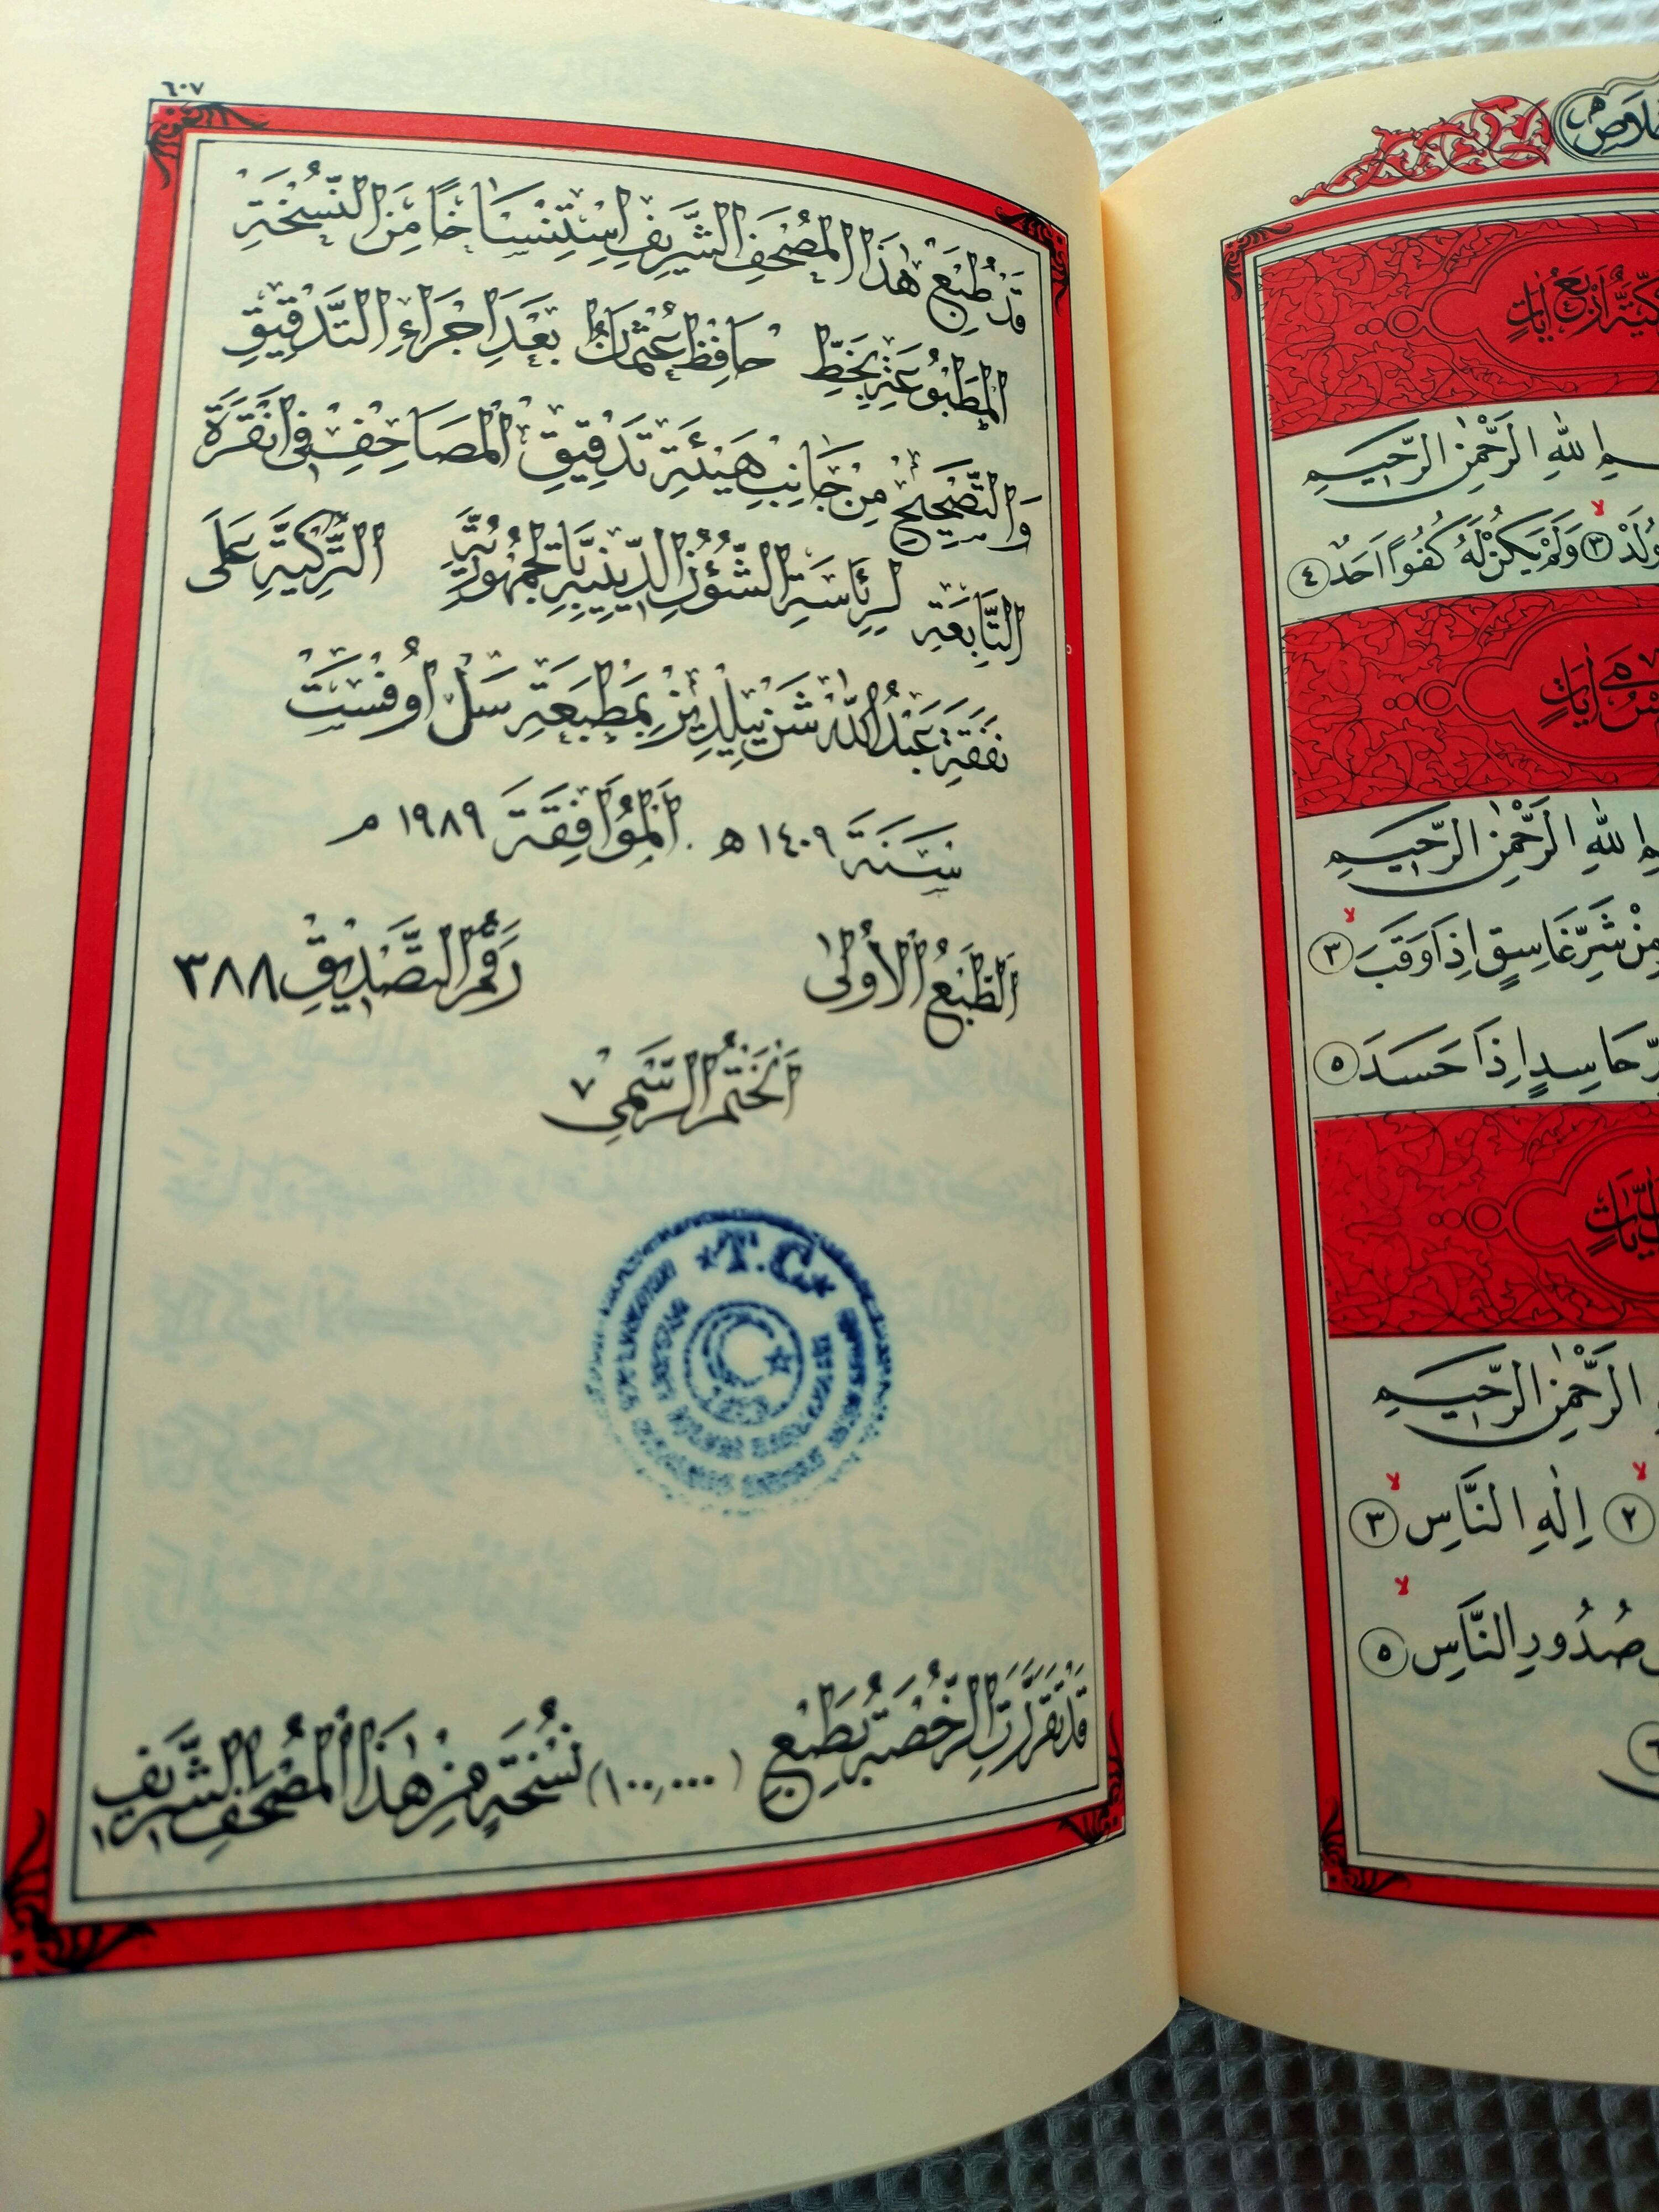 ٦٠٧
قَدْ طُبِعَ هٰذَا الْمُصْحَفُ الشَّرِيفُ اِسْتِنْسَاخًا مِنَ النُّسْخَةِ
الْمَطْبُوعَةِ بِخَطِّ حَافِظْ عُثْمَانْ بَعْدَ اِجْرَاءِ التَّدْقِيقِ
وَالتَّصْحِيحِ مِنْ جَانِبِ هَيْئَةِ تَدْقِيقِ الْمَصَاحِفِ فِى اَنْقَرَةَ
التَّابِعَةِ لِرِئَاسَةِ الشُّؤُنِ الدِّينِيَّةِ الْجُمْهُورِيَّةِ التُّرْكِيَّةِ عَلَى
نَفَقَةِ عَبْدُ اللّٰهْ شَنْ يِيلْدِيزْ بِمَطْبَعَةِ سَلْ اوُفْسَتْ
سَنَةَ ١٤٠٩ هـ . اَلْمُوَافِقَةَ ١٩٨٩ م
اَلطَّبْعُ الْأُولٰى رَقْمُ التَّصْدِيقِ ٣٨٨
اَلْخَتْمُ الرَّسْمِىُّ
T.C.
قَدْ تَقَرَّرَتِ الرُّخْصَةُ بِطَبْعِ (١٠٠,٠٠٠) نُسْخَةٍ مِنْ هٰذَا الْمُصْحَفِ الشَّرِيفِ
اَرْبَعُ اٰيَاتٍ
اللّٰهِ الرَّحْمٰنِ الرَّحِيمِ
٣ وَلَمْ يَكُنْ لَهُ كُفُوًا اَحَدٌ ٤
اٰيَاتٍ
اللّٰهِ الرَّحْمٰنِ الرَّحِيمِ
مِنْ شَرِّ غَاسِقٍ اِذَا وَقَبَ ٣
حَاسِدٍ اِذَا حَسَدَ ٥
اٰيَاتٍ
الرَّحْمٰنِ الرَّحِيمِ
٢ اِلٰهِ النَّاسِ ٣
صُدُورِ النَّاسِ ٥
٦